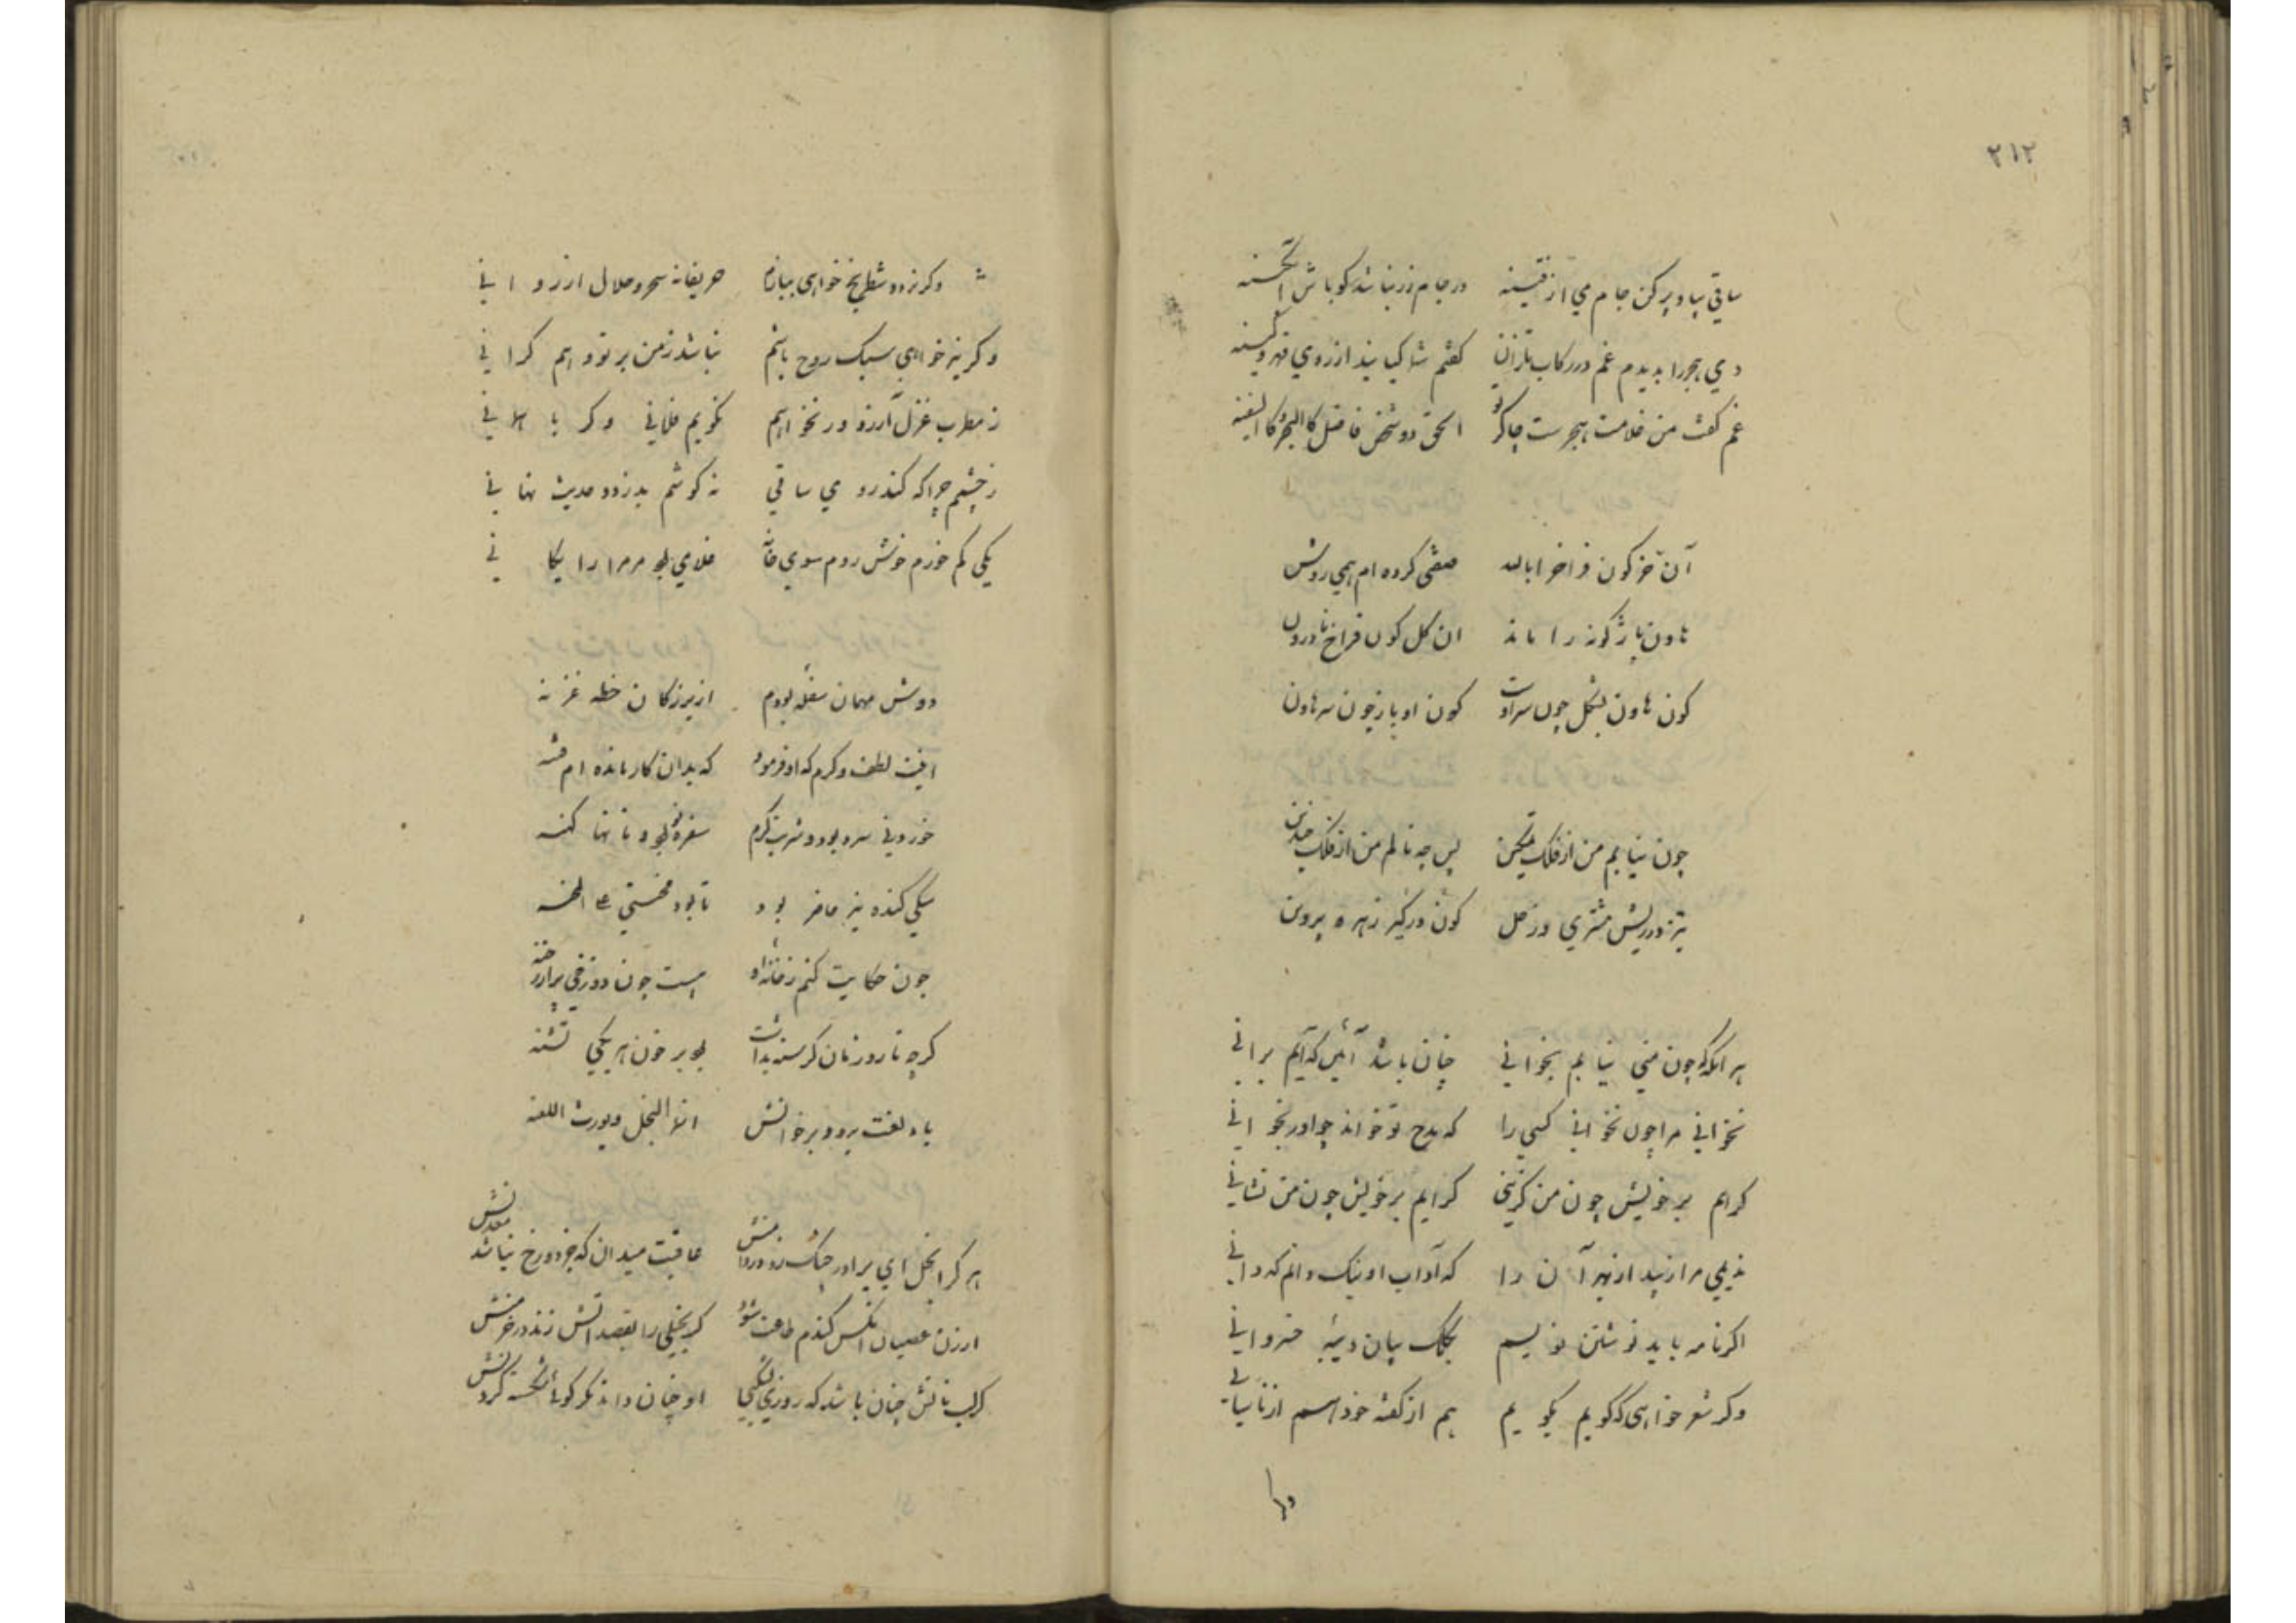 ۲۱۲
ساقي بيا و پر کن جام مي از قنينه در جام زر نباشد کو باش آبگينه
دي هجر را بديدم غم در رکاب تازان گفتم شما کيانيد از روي قهر و کينه
غم گفت من غلامت هجرست چاکر تو الحق دو شخص فاضل کالبحر و کالسفينه
آن خر کون فراخ ابا لله صفتي کرده ام همي روشن
هاون باژگونه را ماند ان کل کون فراخ نادرون
کون هاون بشکل چون سر اوست کون او باز چون سر هاون
چون نيابم من از فلک تمکين پس چه نالم من از فلک چندين
تيز در ريش مشتري و زحل کون در کير زهره پروين
هر انگه که چون مني نيابم بخواني چنان باشد آئين که آيم براني
نخواني مرا چون نخواني کسي را که مدح تو خواند چو او را بخواني
کرايم بر خويش چون من گزيني کرايم بر خويش چون من نشاني
نديمي مرا زيبد از بهر آن را که آداب او نيک دانم که داني
اگر نامه بايد نوشتن نويسم بکلک بيان ديبه خسرواني
وکر شعر خواهي که گويم بگويم هم از گفته خود هم از باستاني
وکر
وکر نرد و شطرنج خواهي ببازم حريفانه سحر حلال ارزواني
وکر نيز خواهي سبک روح باشم نباشد ز من بر تو و هم کراني
ز مطرب غزل آرزو در نخواهم نگويم فلاني وکر باهماني
ز چشم چرا که کند رو مي ساقي نه گوشم بدزدد حديث نهاني
يکي کم خورم خوش روم سوي خانه غلامي بود مر مرا رايگاني
دوش مهمان سفله بودم از بزرگان خطه غزنه
اينت لطف و کرم که او فرمود که بدان کار مانده ام فتنه
خوردني سرد بود و شربت گرم سفره بود و نانها کهنه
يکي گنده نيز حاضر بود تا بود مخستي علي المحنه
چون حکايت کنم ز خانه او هست چون دوزخي پر از رخنه
گرچه تا روز نان گرسنه بداشت بود بر خون هر يکي تشنه
باد لعنت برو و بر خوانش انما البخل يورث اللعنه
هر کرا بخل اي برادر چنگ زد در دامنش عاقبت ميدان که جز دوزخ نباشد معدنش
ارزن عصيان انکس گندم طاعت شود کر بخيلي را بقصد اتش زند در خرمنش
کر لب نانش چنان باشد که روزي بشکني او چنان داند مگر کوئي شکسته گردنش